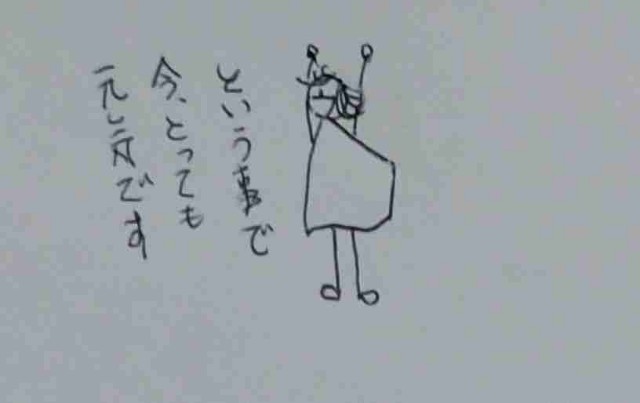 という事で
今、とっても
元気です